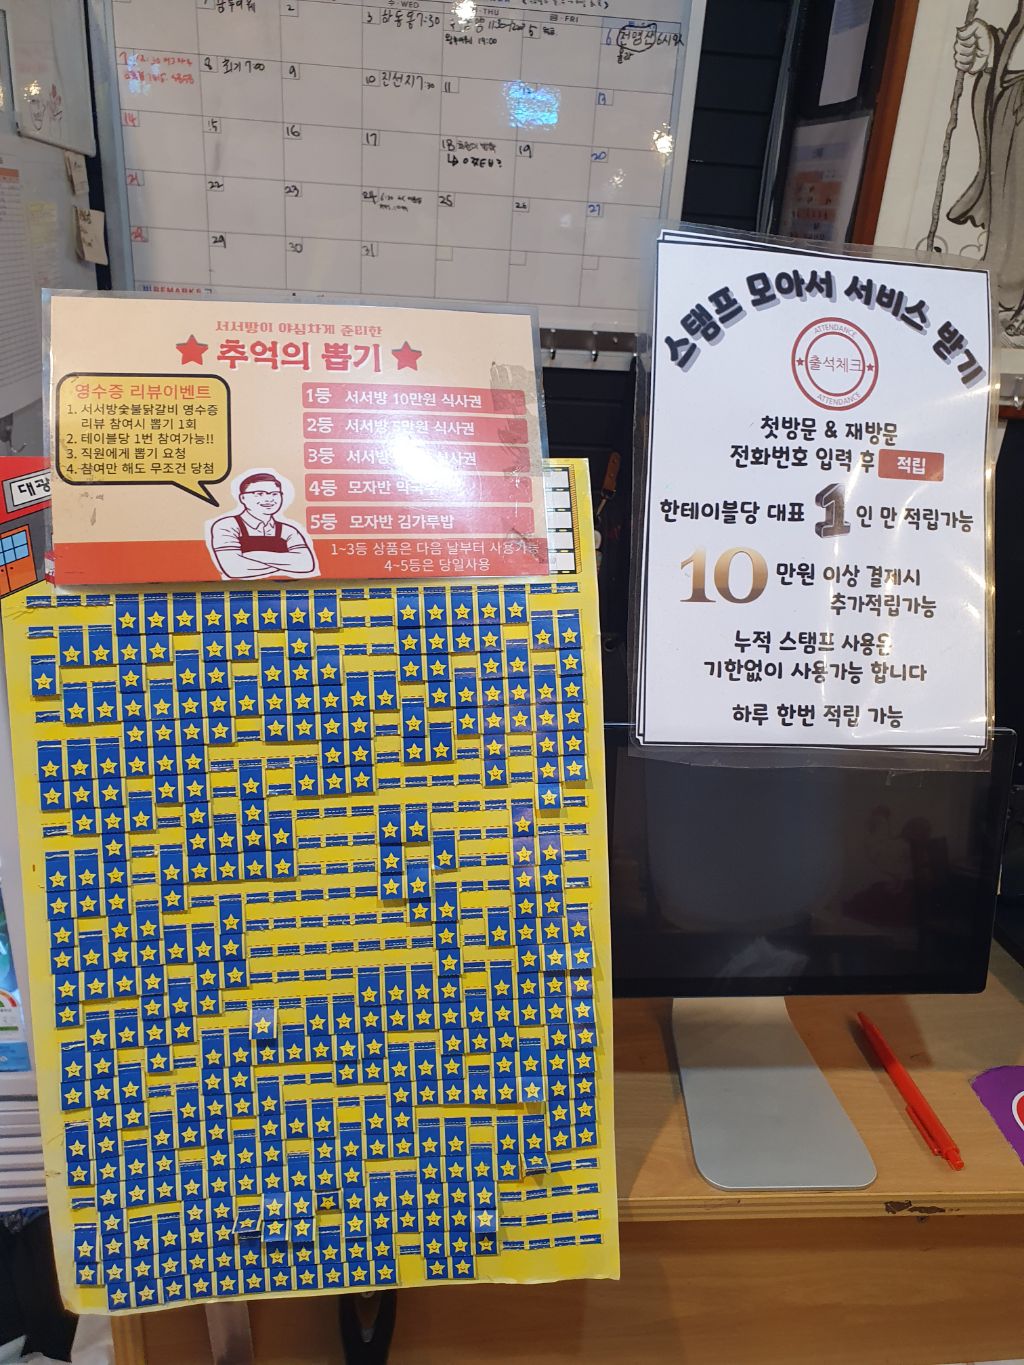 수·WED
목·THU
금·FRI
1
2
3 하동룡 7:30
5
6
7
8 회기 7:00
9
10 진선지 7:30
11
12
13
14
15
16
17
18
19
20
21
22
23
24
25
26
27
28
29
30
31
REMARKS
서서방이 야심차게 준비한
추억의 뽑기
영수증 리뷰이벤트
1. 서서방숯불닭갈비 영수증
리뷰 참여시 뽑기 1회
2. 테이블당 1번 참여가능!!
3. 직원에게 뽑기 요청
4. 참여만 해도 무조건 당첨
1등 서서방 10만원 식사권
2등 서서방 5만원 식사권
3등 서서방 식사권
4등 모자반
5등 모자반 김가루밥
1~3등 상품은 다음 날부터 사용가능
4~5등은 당일사용
대광
스탬프 모아서 서비스 받기
ATTENDANCE
출석체크
ATTENDANCE
첫방문 & 재방문
전화번호 입력 후 적립
한테이블당 대표 1인 만 적립가능
10만원 이상 결제시
추가적립가능
누적 스탬프 사용은
기한없이 사용가능 합니다
하루 한번 적립 가능